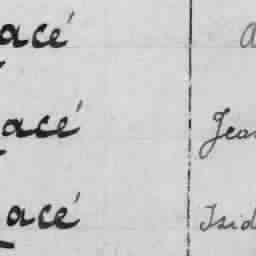 acé
acé Jea
acé Isid